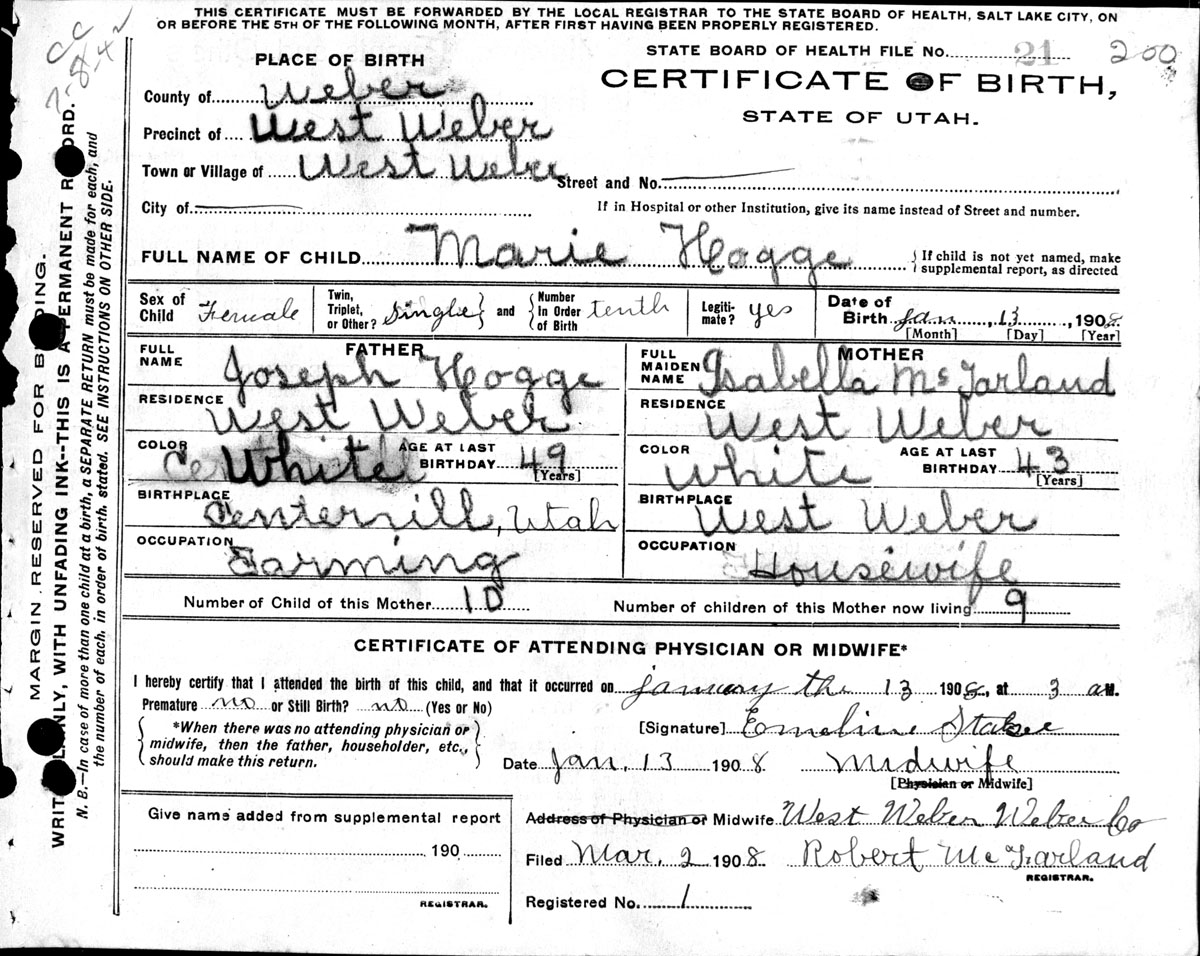 THIS CERTIFICATE MUST BE FORWARDED BY THE LOCAL REGISTRAR TO THE STATE BOARD OF HEALTH, SALT LAKE CITY, ON
OR BEFORE THE 5TH OF THE FOLLOWING MONTH, AFTER FIRST HAVING BEEN PROPERLY REGISTERED.
CC
7-8-42
STATE BOARD OF HEALTH FILE No. 21 200
PLACE OF BIRTH
CERTIFICATE OF BIRTH,
STATE OF UTAH.
County of Weber
Precinct of West Weber
Town or Village of West Weber Street and No.
City of If in Hospital or other Institution, give its name instead of Street and number.
FULL NAME OF CHILD Marie Hogge { If child is not yet named, make supplemental report, as directed
Sex of Child Female Twin, Triplet, or Other? Single } and { Number In Order of Birth tenth Legiti-mate? yes Date of Birth Jan, 13, 1908
[Month] [Day] [Year]
FATHER MOTHER
FULL NAME Joseph Hogge FULL MAIDEN NAME Isabella McFarland
RESIDENCE West Weber RESIDENCE West Weber
COLOR White AGE AT LAST BIRTHDAY 49 [Years] COLOR White AGE AT LAST BIRTHDAY 43 [Years]
BIRTHPLACE Centervill, Utah BIRTHPLACE West Weber
OCCUPATION Farming OCCUPATION Housewife
Number of Child of this Mother 10 Number of children of this Mother now living 9
CERTIFICATE OF ATTENDING PHYSICIAN OR MIDWIFE*
I hereby certify that I attended the birth of this child, and that it occurred on january the 13 1908, at 3 a M.
Premature no or Still Birth? no (Yes or No)
{ *When there was no attending physician or midwife, then the father, householder, etc., should make this return. }
[Signature] Emeline
Date Jan. 13 1908 Midwife
[Physician or Midwife]
Give name added from supplemental report
190
REGISTRAR.
Address of Physician or Midwife West Weber Weber Co
Filed Mar. 2 1908 Robert McFarland
REGISTRAR.
Registered No. 1
MARGIN RESERVED FOR BINDING.
WRITE PLAINLY, WITH UNFADING INK--THIS IS A PERMANENT RECORD.
N. B.—In case of more than one child at a birth, a SEPARATE RETURN must be made for each, and
the number of each, in order of birth, stated. SEE INSTRUCTIONS ON OTHER SIDE.